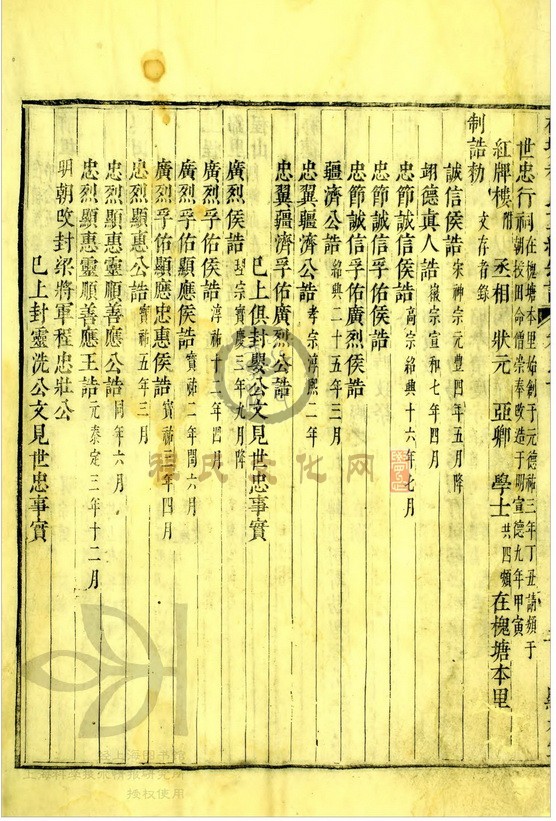 世忠行祠 在槐塘本里始創于元德祐三年丁丑請額于
朝撥田命僧崇奉改造于明宣德九年甲寅
紅牌樓 丞相 狀元 亞卿 學士 共四額 在槐塘本里
制誥勅 文存者錄
誠信侯誥 宋神宗元豐四年五月降
翊德真人誥 徽宗宣和七年四月
忠節誠信侯誥 高宗紹興十六年七月
忠節誠信孚佑侯誥
忠節誠信孚佑廣烈侯誥
疆濟公誥 紹興二十五年三月
忠翼疆濟公誥 孝宗淳熙二年
忠翼疆濟孚佑廣烈公誥
已上俱封嬰公文見世忠事實
廣烈侯誥 理宗寶慶三年九月降
廣烈孚佑侯誥 淳祐十二年四月
廣烈孚佑顯應侯誥 寶祐二年閏六月
廣烈孚佑顯應忠惠侯誥 寶祐三年四月
忠烈顯惠公誥 寶祐五年三月
忠烈顯惠靈順善應公誥 同年六月
忠烈顯惠靈順善應王誥 元泰定三年十二月
明朝改封梁將軍程忠壯公
已上封靈洗公文見世忠事實
程氏文化网
上海图书馆
上海科学技术情报研究所
授权使用